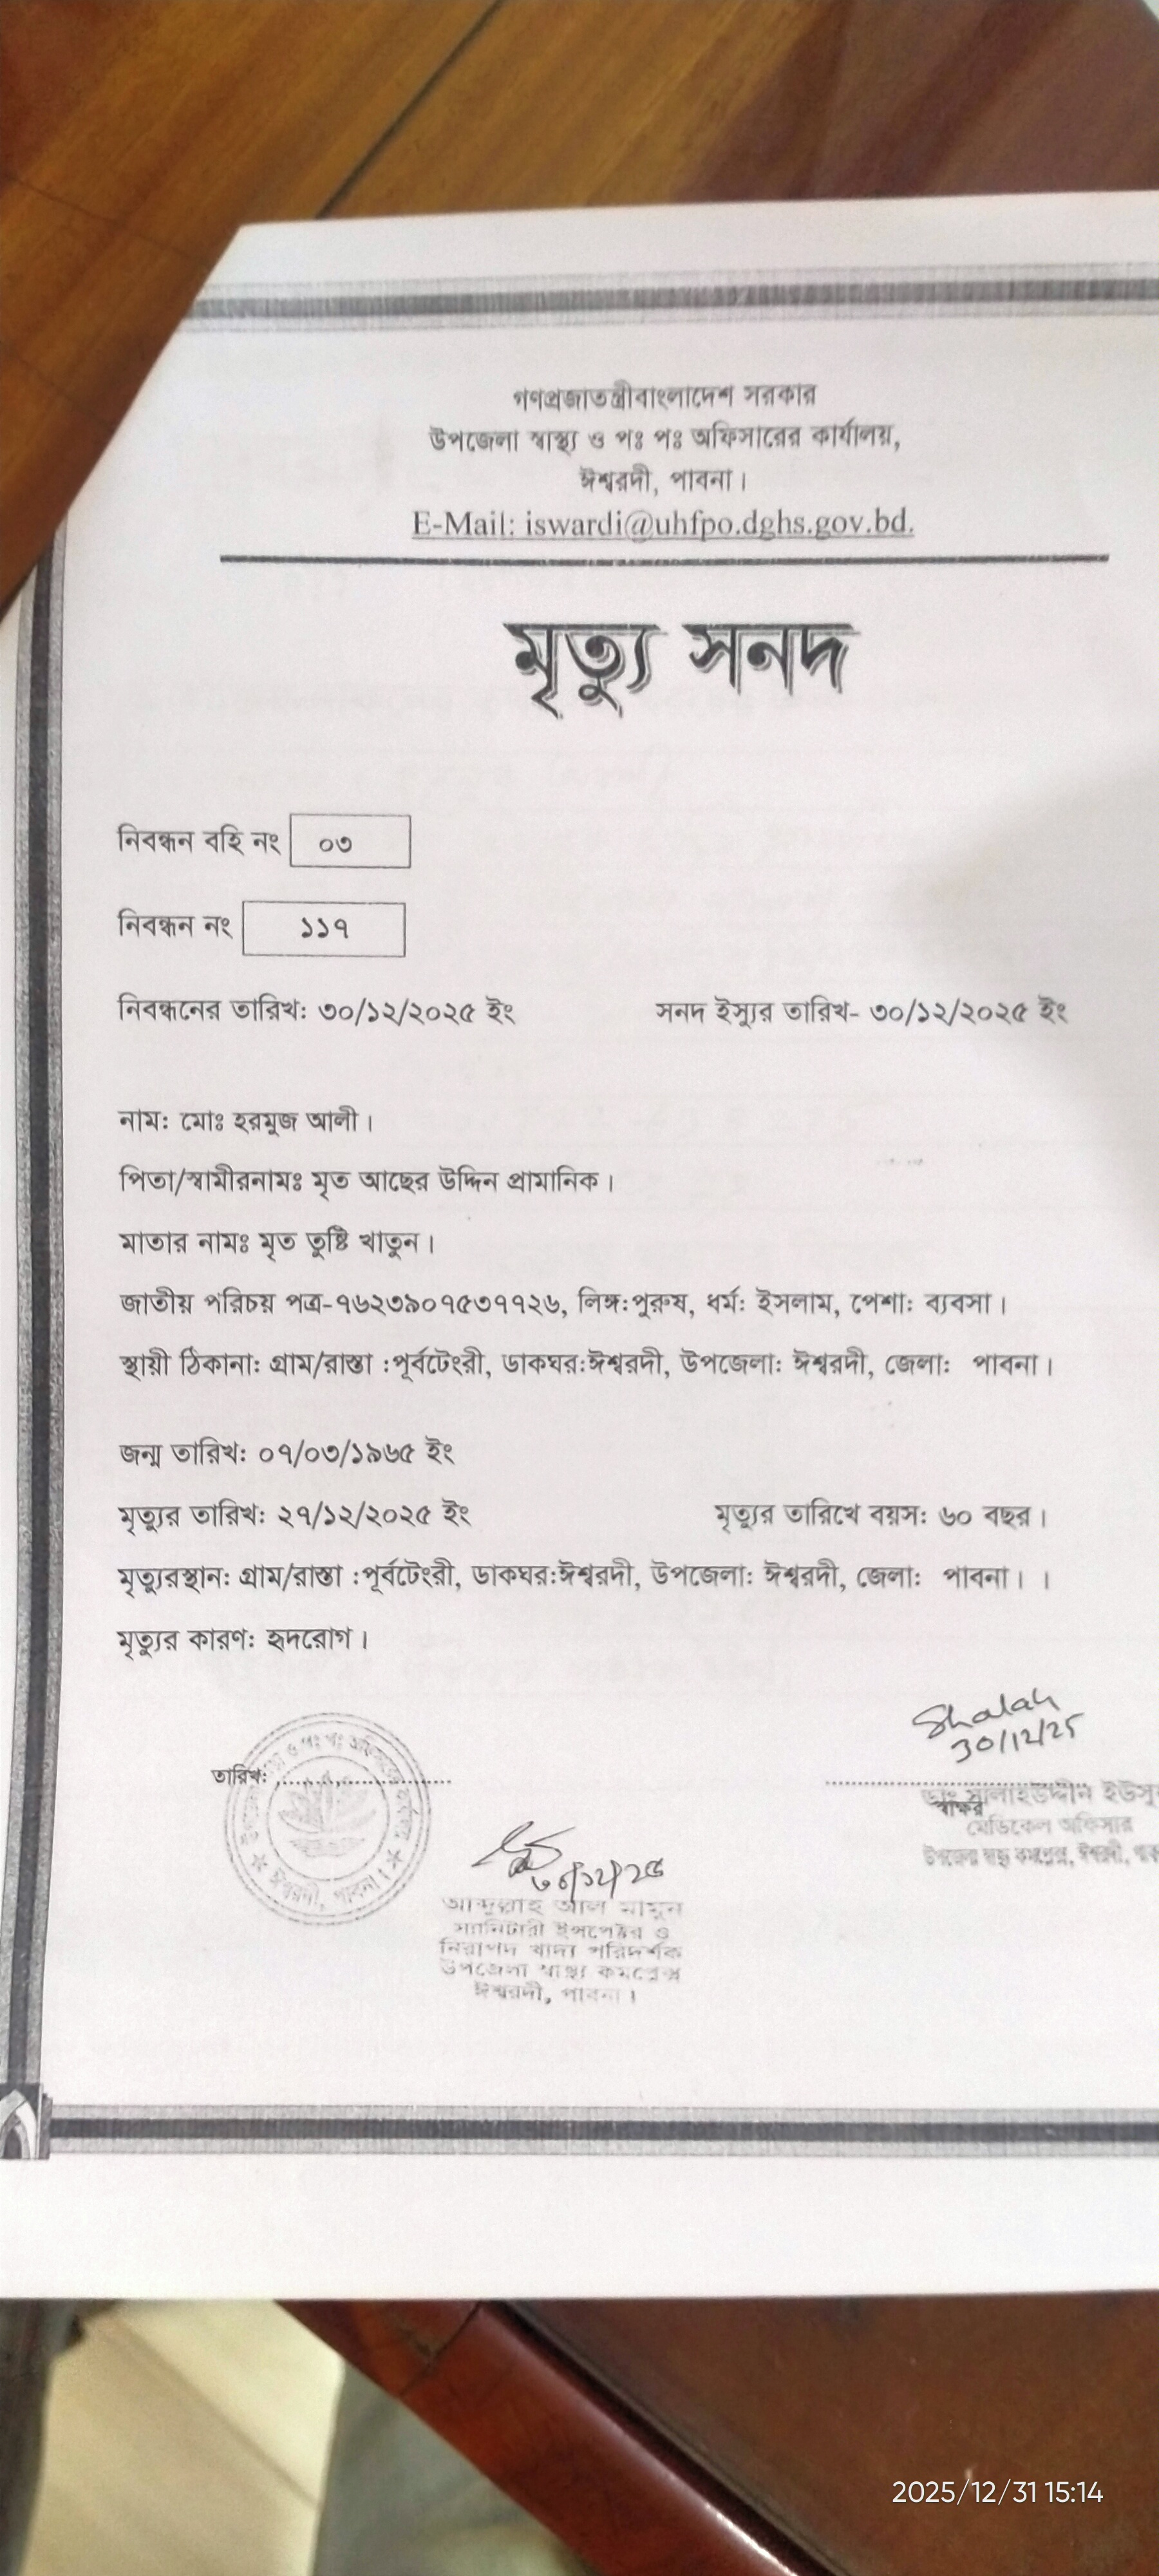 গণপ্রজাতন্ত্রীবাংলাদেশ সরকার
উপজেলা স্বাস্থ্য ও পঃ পঃ অফিসারের কার্যালয়,
ঈশ্বরদী, পাবনা।
E-Mail: iswardi@uhfpo.dghs.gov.bd.
মৃত্যু সনদ
নিবন্ধন বহি নং ০৩
নিবন্ধন নং ১১৭
নিবন্ধনের তারিখ: ৩০/১২/২০২৫ ইং সনদ ইস্যুর তারিখ- ৩০/১২/২০২৫ ইং
নাম: মোঃ হরমুজ আলী।
পিতা/স্বামীরনামঃ মৃত আছের উদ্দিন প্রামানিক।
মাতার নামঃ মৃত তুষ্টি খাতুন।
জাতীয় পরিচয় পত্র-৭৬২৩৯০৭৫৩৭৭২৬, লিঙ্গ:পুরুষ, ধর্ম: ইসলাম, পেশা: ব্যবসা।
স্থায়ী ঠিকানা: গ্রাম/রাস্তা :পূর্বটেংরী, ডাকঘর:ঈশ্বরদী, উপজেলা: ঈশ্বরদী, জেলা: পাবনা।
জন্ম তারিখ: ০৭/০৩/১৯৬৫ ইং
মৃত্যুর তারিখ: ২৭/১২/২০২৫ ইং মৃত্যুর তারিখে বয়স: ৬০ বছর।
মৃত্যুরস্থান: গ্রাম/রাস্তা :পূর্বটেংরী, ডাকঘর:ঈশ্বরদী, উপজেলা: ঈশ্বরদী, জেলা: পাবনা। ।
মৃত্যুর কারণ: হৃদরোগ।
Shalah
30/12/25
তারিখ: ..............................
স্বাক্ষর
ডাঃ সালাহউদ্দীন
মেডিকেল অফিসার
উপজেলা স্বাস্থ্য কমপ্লেক্স, ঈশ্বরদী,
ও পঃ পঃ
ঈশ্বরদী, পাবনা।
৩০/১২/২৫
আব্দুল্লাহ আল মামুন
স্যানিটারী ইন্সপেক্টর ও
নিরাপদ খাদ্য পরিদর্শক
উপজেলা স্বাস্থ্য কমপ্লেক্স
ঈশ্বরদী, পাবনা।
2025/12/31 15:14